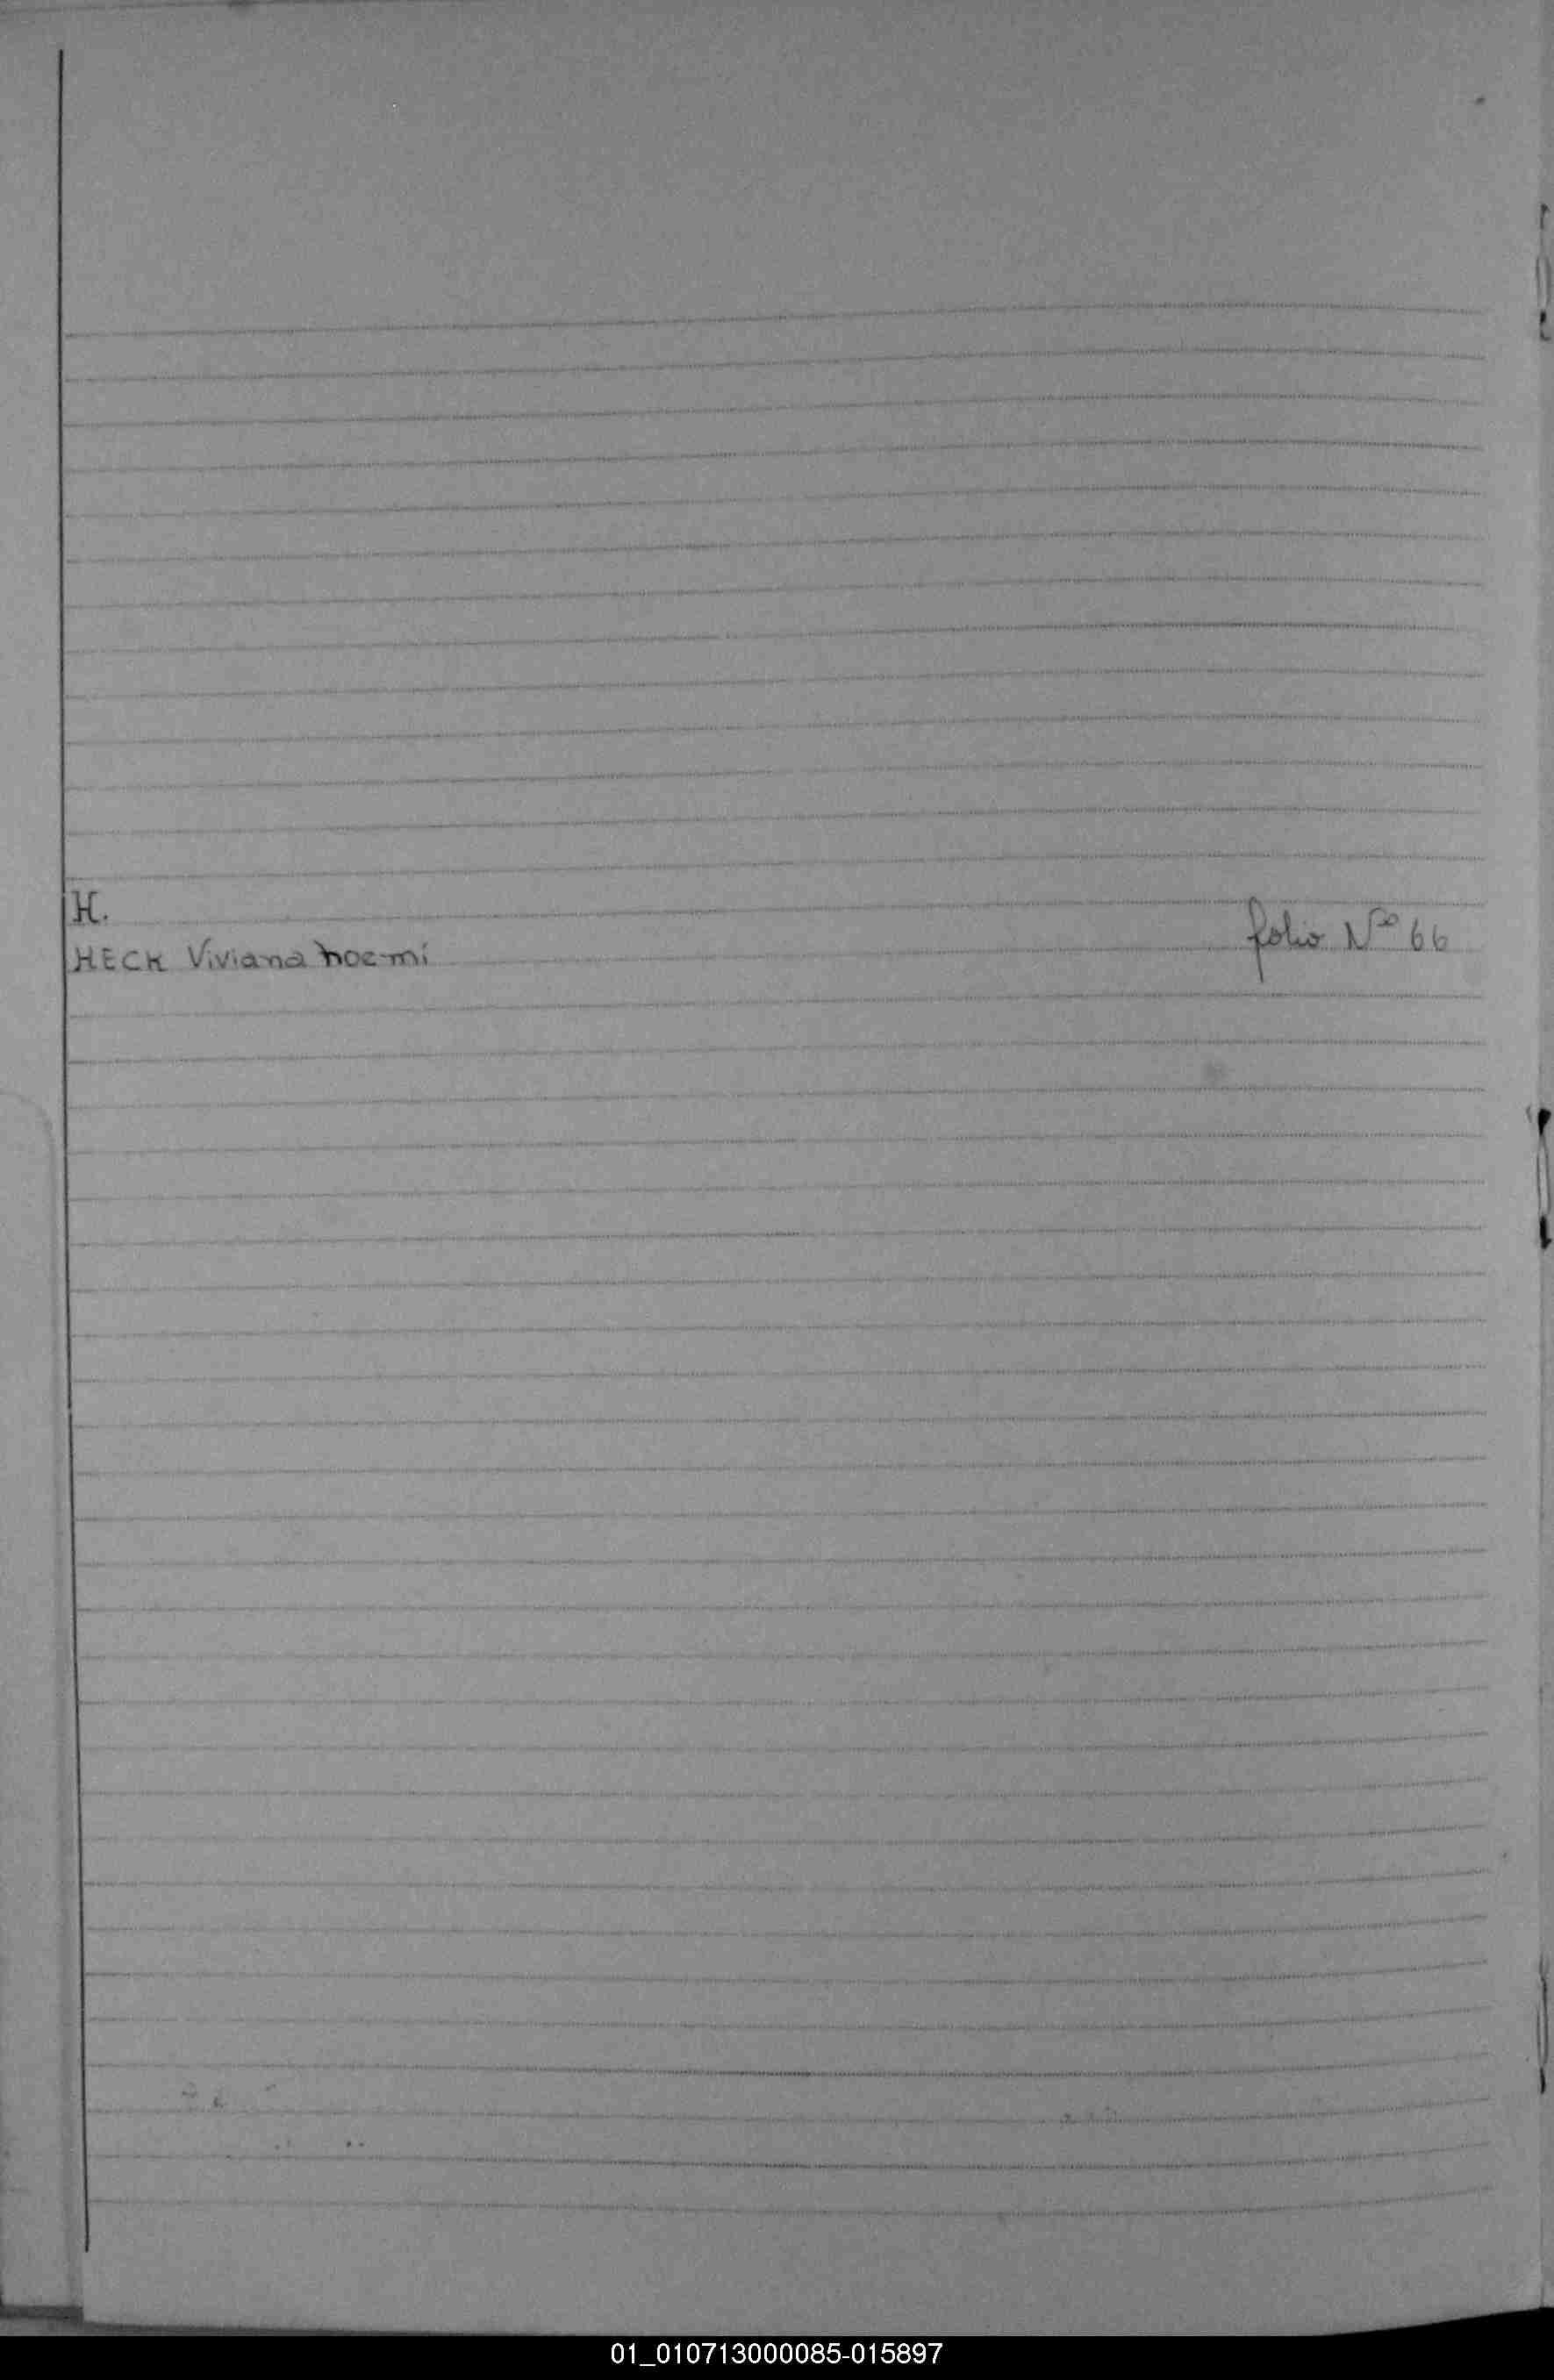 H.
HECK Viviana noemí folio Nº 66
01_010713000085-015897